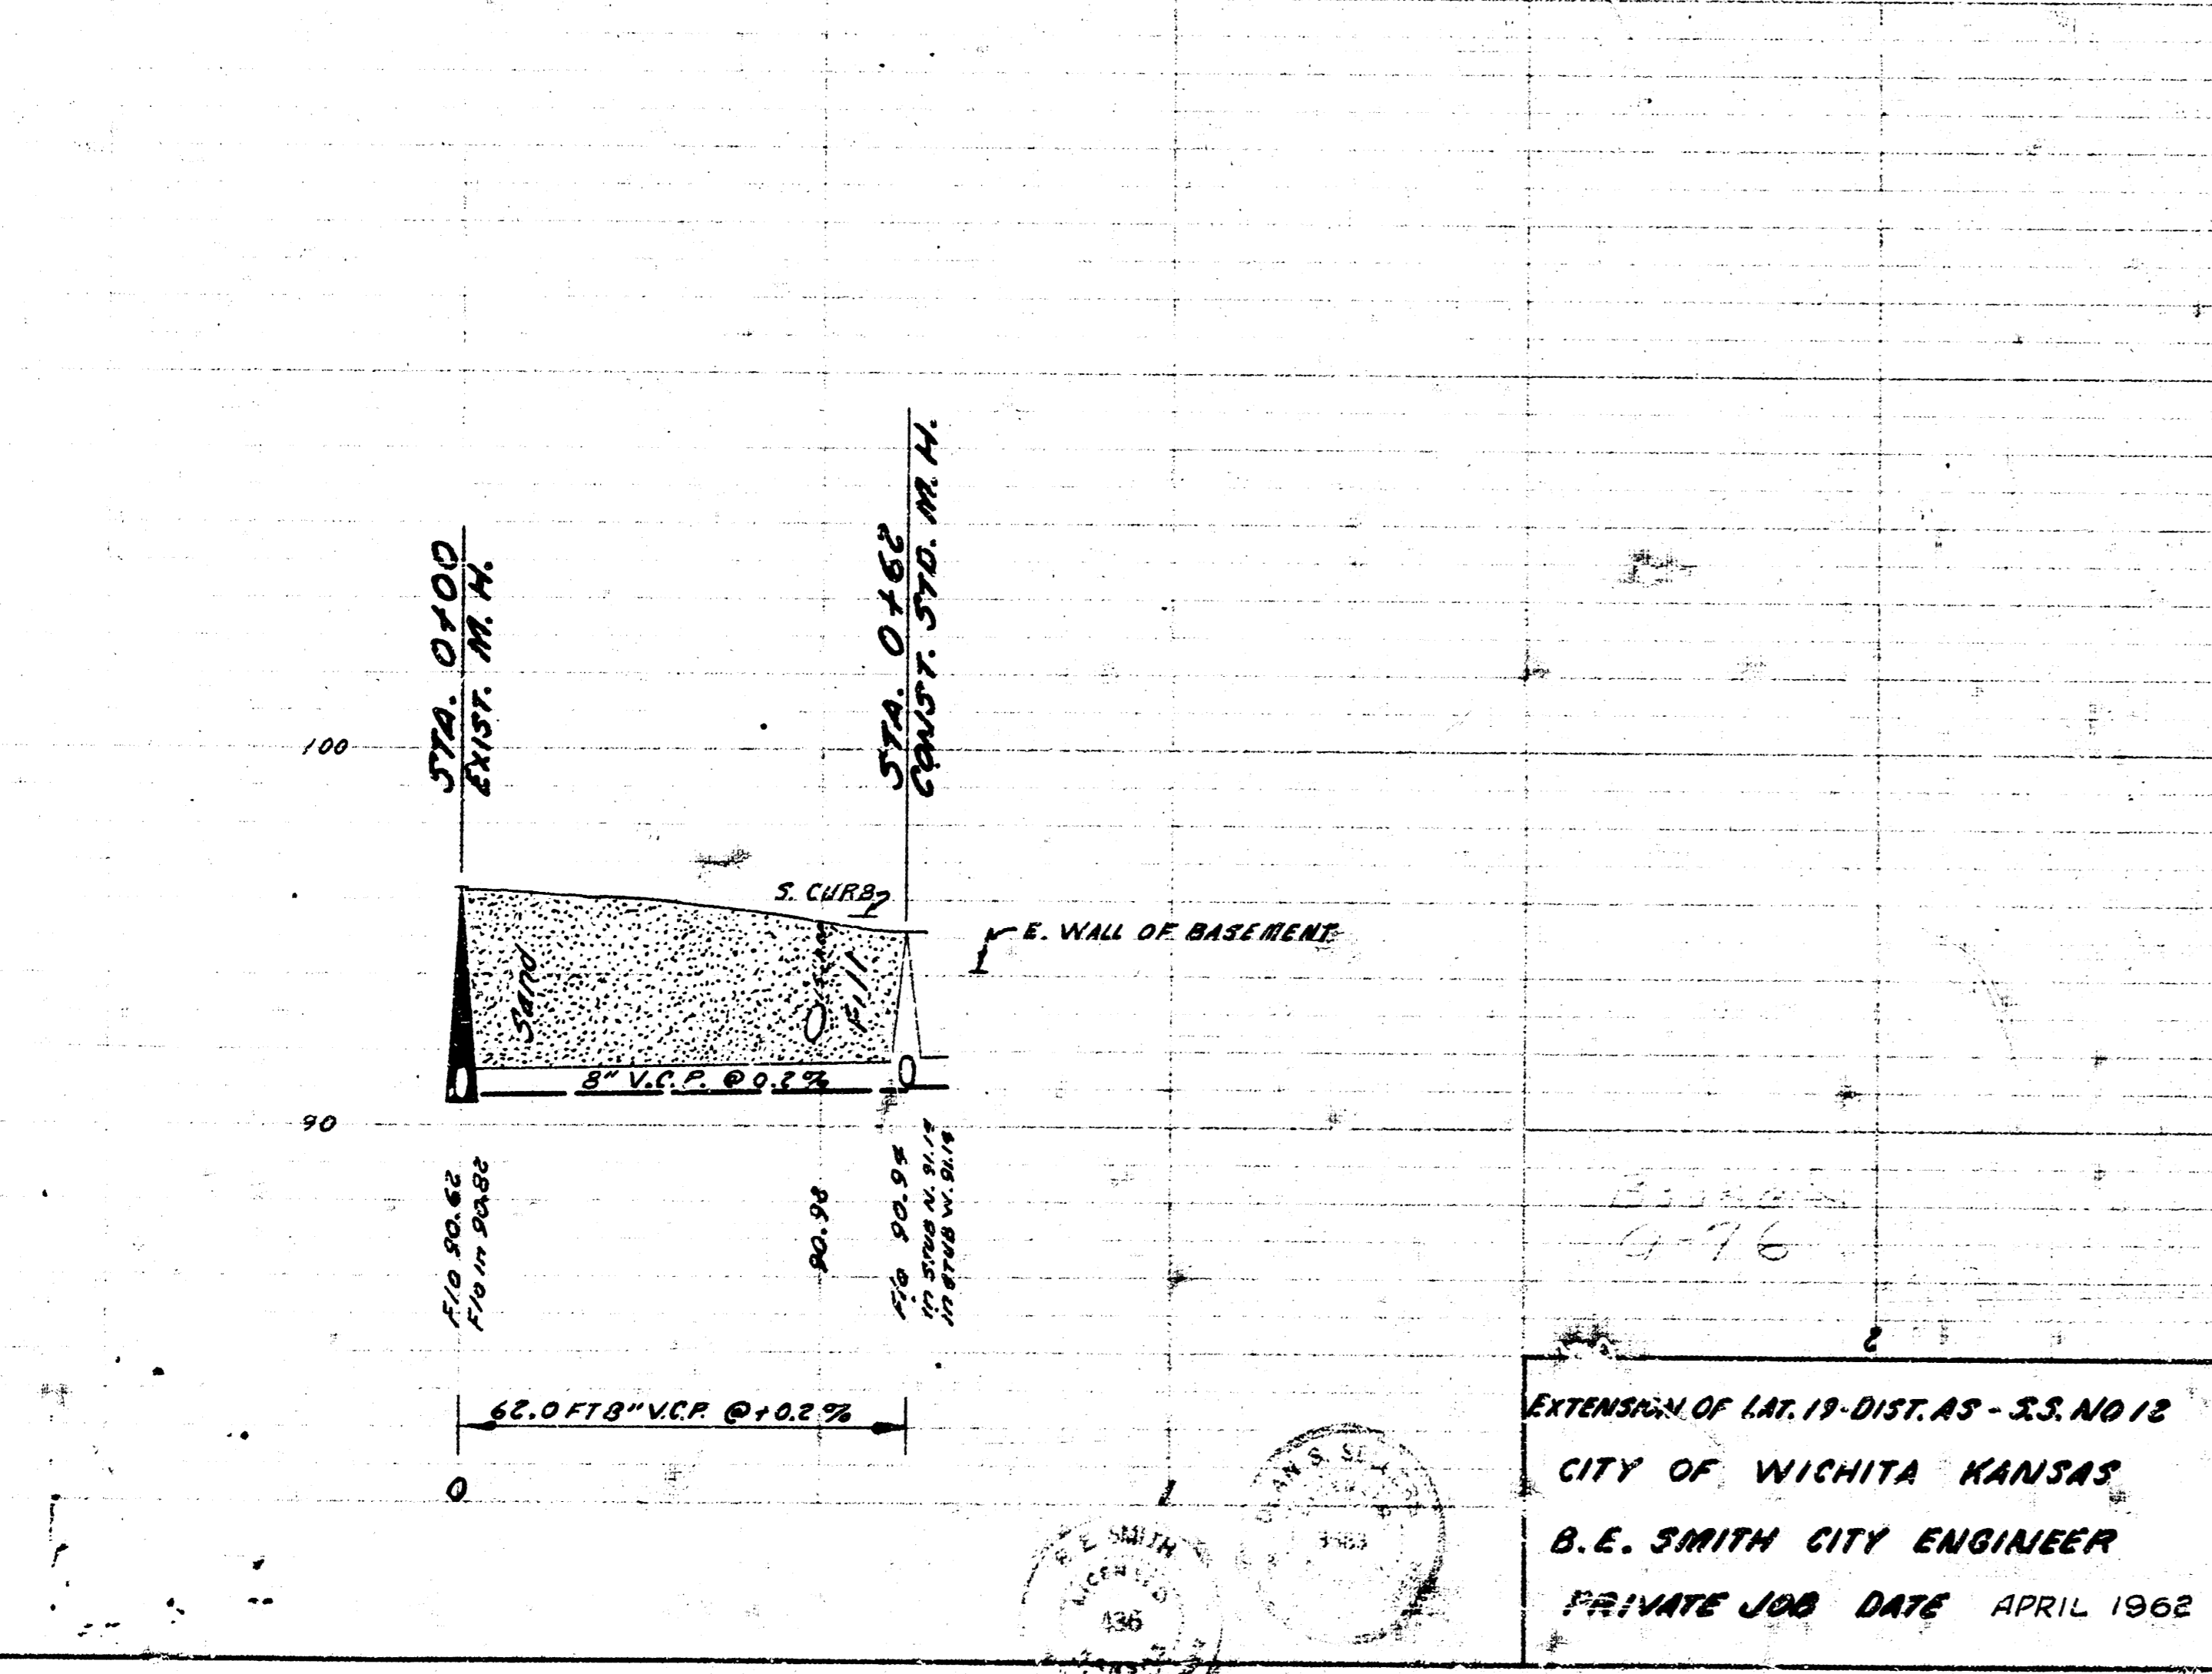 STA. 0+00
EXIST. M.H.
STA. 0+62
CONST. STD. M.H.
100
S. CURB
E. WALL OF BASEMENT
Sand
Fill
8" V.C.P. @ 0.2%
90
F/o 90.62
F/o in 90.82
90.98
F/o 90.94
in STUB N. 91.14
in STUB W. 91.14
9-76
2
62.0 FT 8" V.C.P. @ +0.2%
0
1
EXTENSION OF LAT. 19-DIST. AS - S.S. NO 12
CITY OF WICHITA KANSAS
B.E. SMITH CITY ENGINEER
PRIVATE JOB DATE APRIL 1962
B. E. SMITH
LICENSED
436